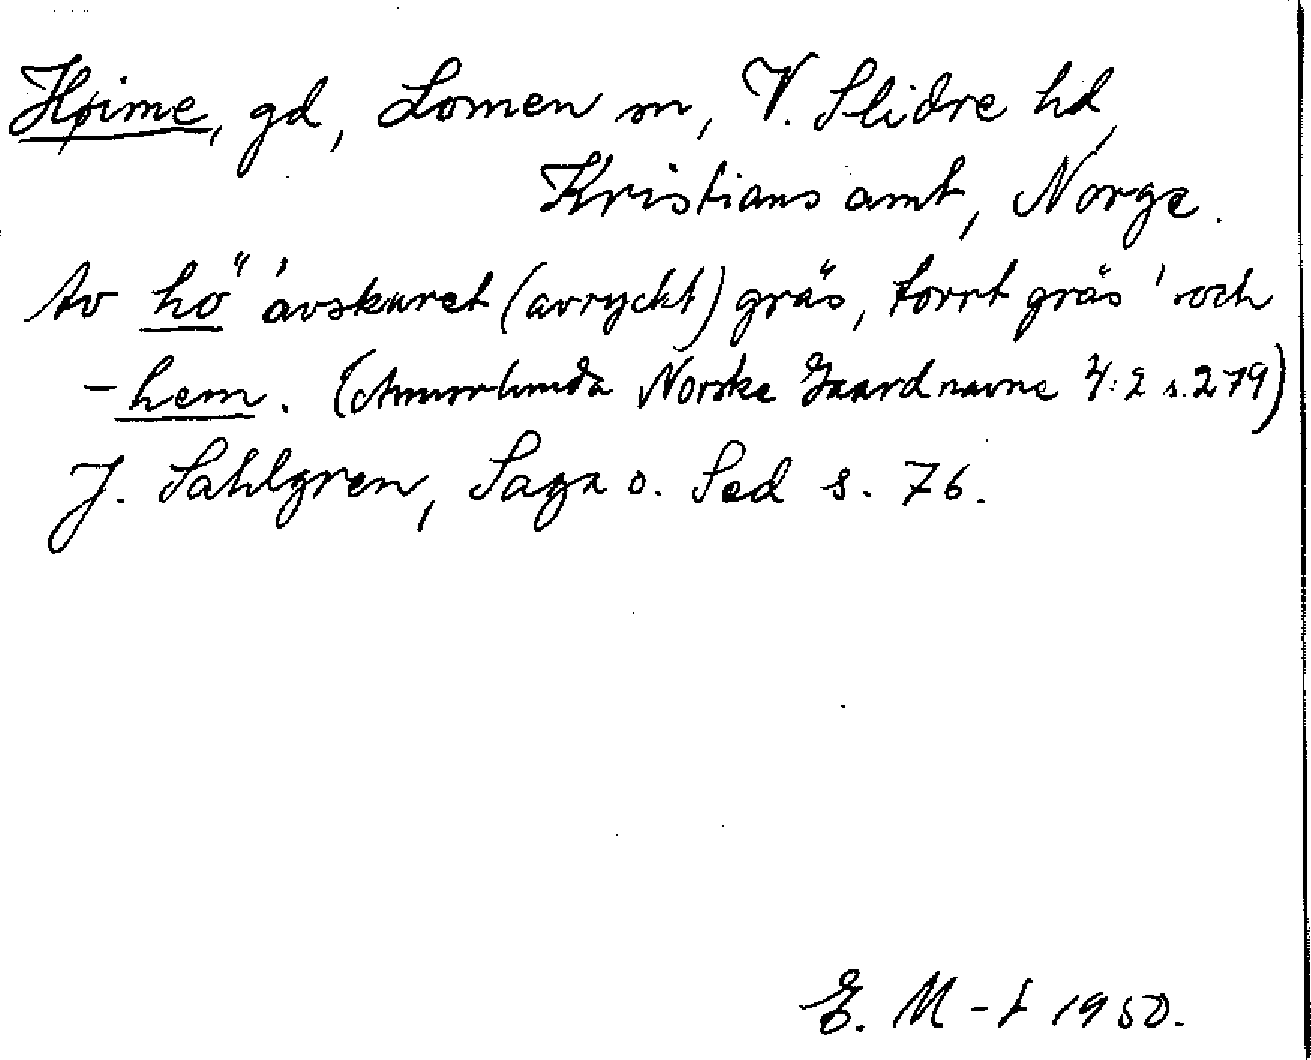 Høime, gd, Lomen sn, V. Slidre hd,
Kristians amt, Norge.
Av hö 'avskuret (avryckt) gräs, torrt gräs' och
-hem. (Annorlunda Norske Gaardnavne 4:2 s. 279)
J. Sahlgren, Saga o. Sed s. 76.
E. M-t 1950.